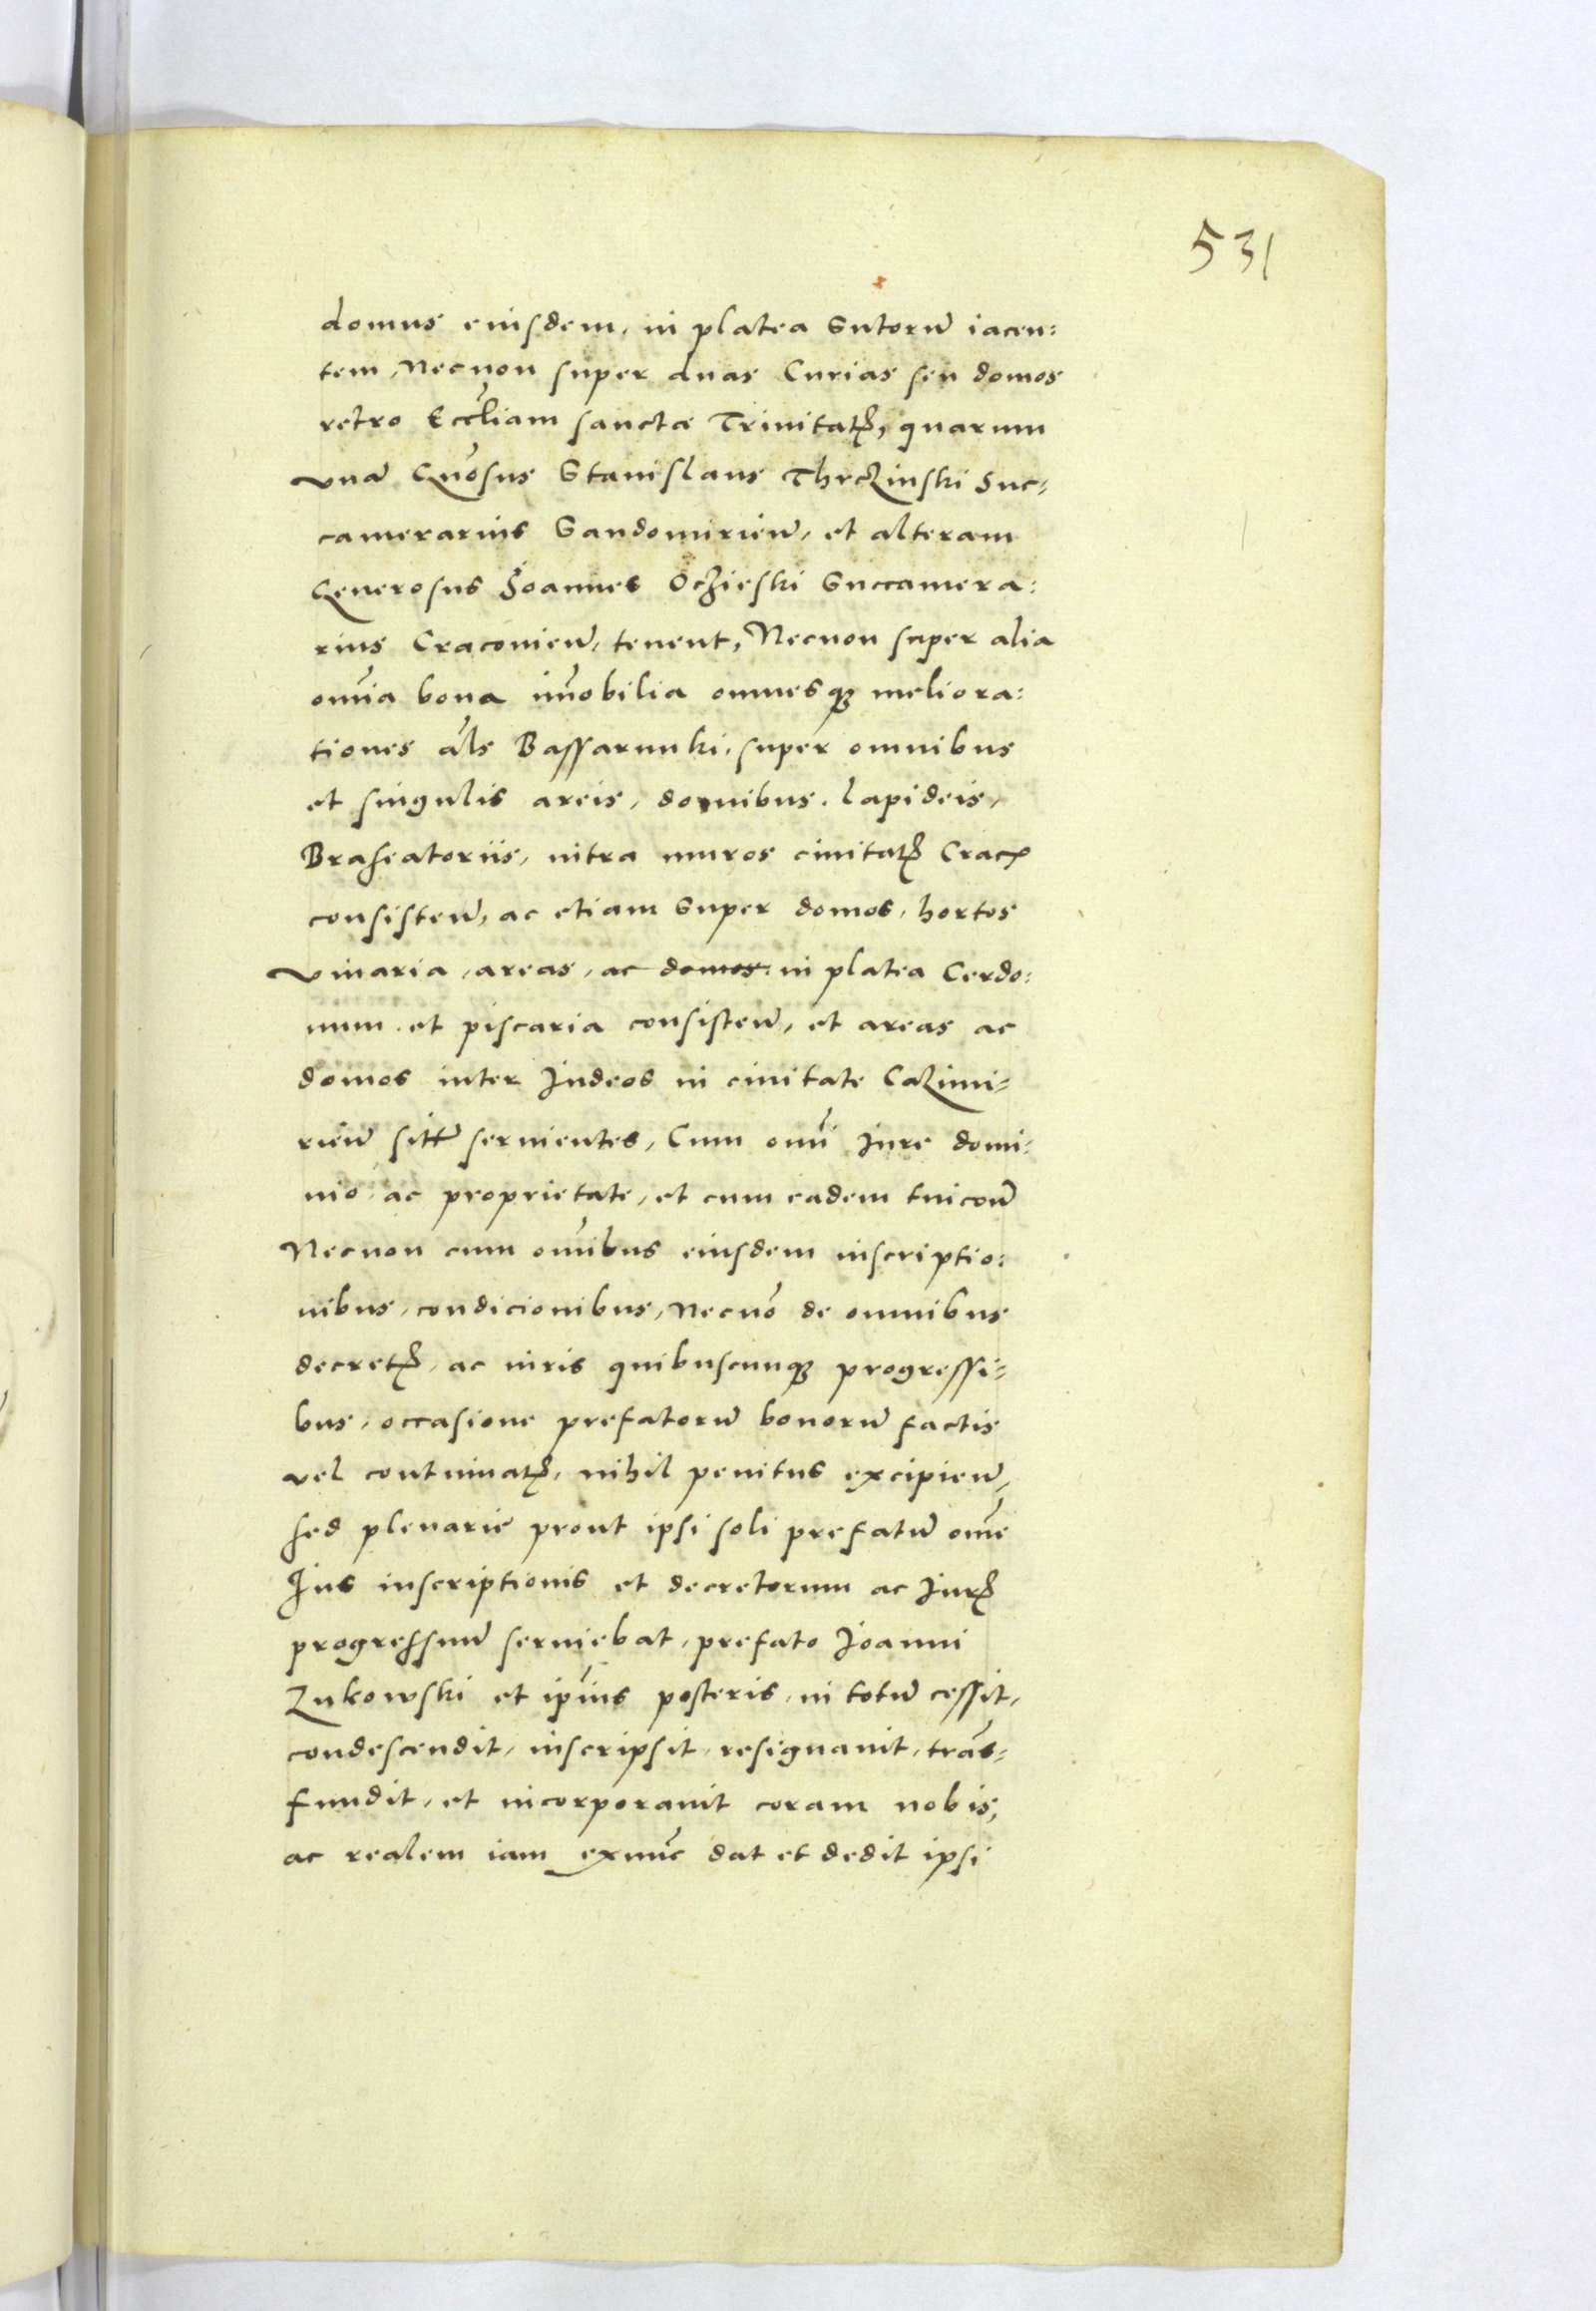 531
domus eiusdem, in platea Sutorũ iacen:
tem, Necnon super duas Curias seu domos
retro Ecctiam sanctæ Trinitatꝭ, quarum
vnã Gñosus Stanislaus Thęczinski Suc-
camerarius Sandomirieñ, et alteram
Generosus Joannes Oczieski Succamera:
rius Cracouieñ, tenent, Necnon super alia
oñia bona im̃obilia omnesqꝫ meliora:
tiones als̃ Bassarunki, super omnibus
et singulis areis, domibus, lapideis,
Braseatoriis, intra muros ciuitatꝭ Cracꝭ
consisteñ, ac etiam super domos, hortos
vinaria, areas, ac domos in platea Cerdo:
num et piscaria consisteñ, et areas ac
domos inter Judeos in ciuitate Cazimi-
rieñ sitas seruientes, Cum oñi Jure domi-
nio ac proprietate, et cum eadem
Necnon cum oñibus eiusdem inscriptio:
nibus, condicionibus, Necnõ de omnibus
decretꝭ, ac iuris quibuscunqꝫ progressi-
bus, occasione prefatorũ bonorũ factis
vel continuatꝭ, nihil penitus excipieñ,
sed plenarie prout ipsi soli prefatũ oñe
Jus inscriptionis et decretorum ac Jurꝭ
progressuũ seruiebat, prefato Joanni
Zukowski et ip̃ius posteris, in totũ cessit,
condescendit, inscripsit, resignauit, trãs-
fundit, et incorporauit coram nobis,
ac realem iam exnũc dat et dedit ipsi